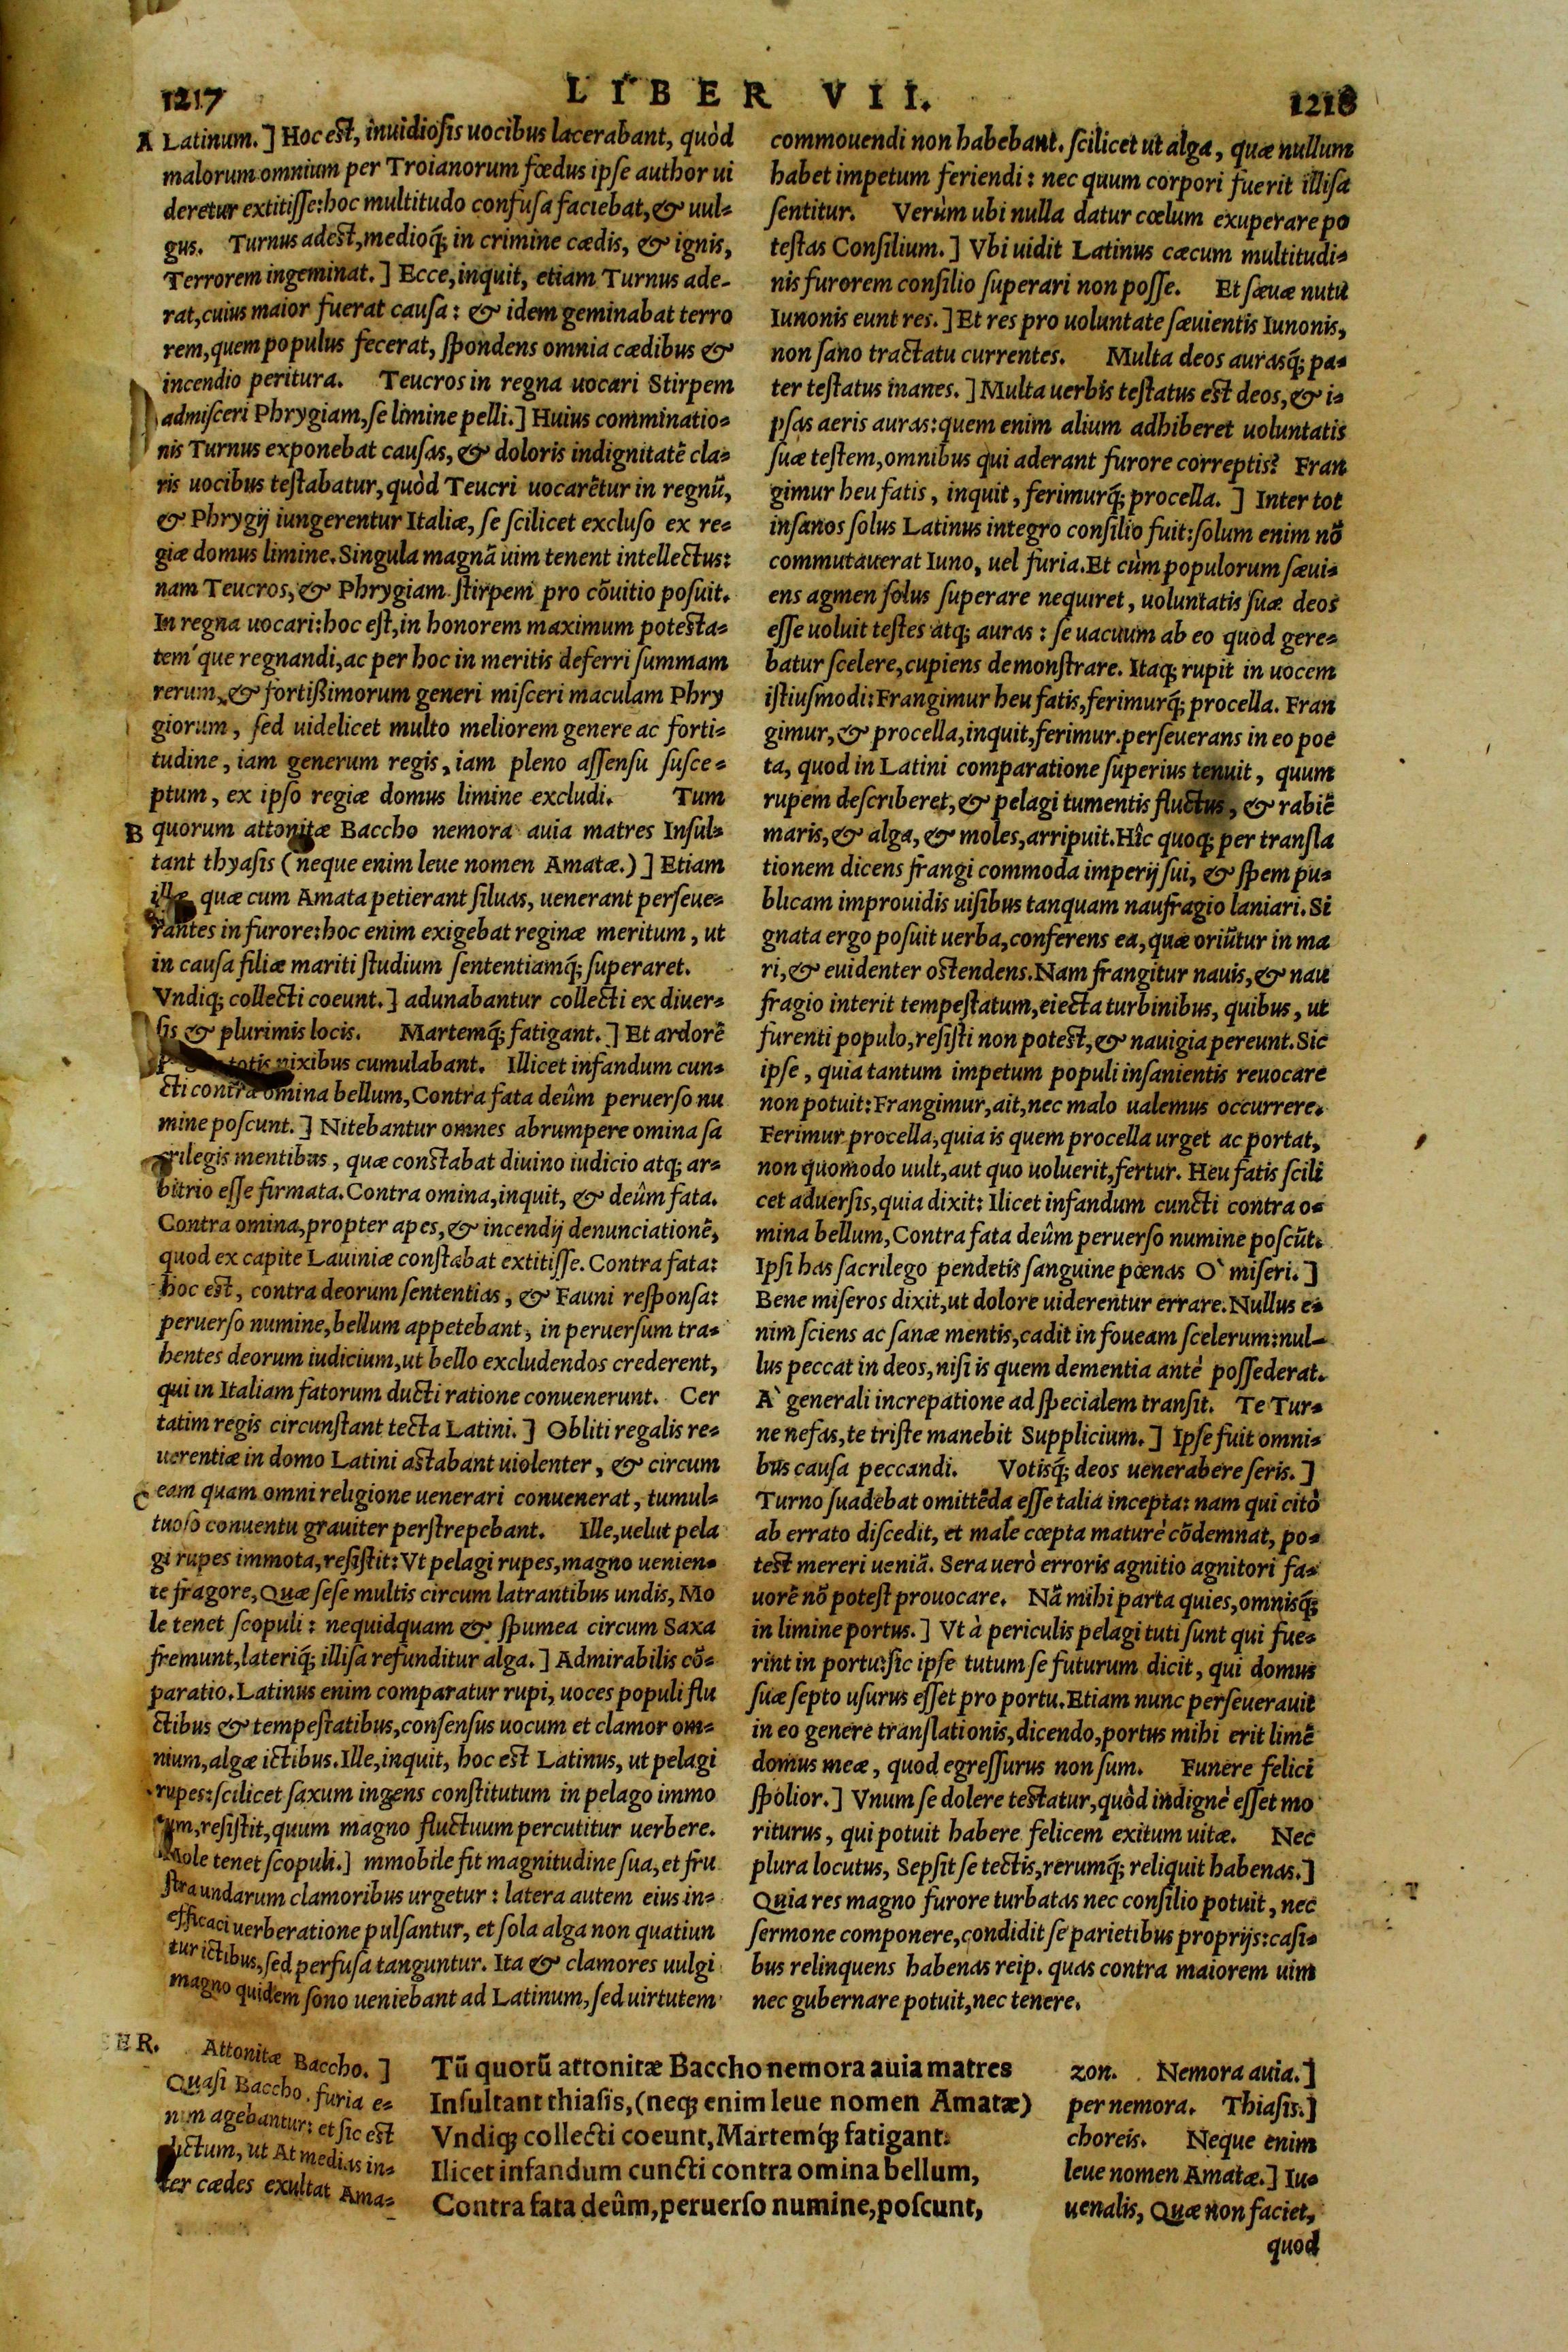 1217
LIBER VII.
1218
A Latinum.] Hoc est, inuidiosis uocibus lacerabant, quòd
malorum omnium per Troianorum fœdus ipse author ui
deretur extitisse: hoc multitudo confusa faciebat, & uul=
gus. Turnus adest, medioq́; in crimine cædis, & ignis,
Terrorem ingeminat.] Ecce, inquit, etiam Turnus ade-
rat, cuius maior fuerat causa: & idem geminabat terro
rem, quem populus fecerat, spondens omnia cædibus &
incendio peritura. Teucros in regna uocari Stirpem
admisceri Phrygiam, se limine pelli.] Huius comminatio=
nis Turnus exponebat causas, & doloris indignitatẽ cla=
ris uocibus testabatur, quòd Teucri uocarẽtur in regnũ,
& Phrygij iungerentur Italiæ, se scilicet excluso ex re=
giæ domus limine. Singula magnã uim tenent intellectus:
nam Teucros, & Phrygiam stirpem pro cõuitio posuit.
In regna uocari: hoc est, in honorem maximum potesta=
tem'que regnandi, ac per hoc in meritis deferri summam
rerum, & fortißimorum generi misceri maculam Phry
giorum, sed uidelicet multo meliorem genere ac forti=
tudine, iam generum regis, iam pleno assensu susce=
ptum, ex ipso regiæ domus limine excludi. Tum
B quorum attonitæ Baccho nemora auia matres Insul=
tant thyasis (neque enim leue nomen Amatæ.)] Etiam
illæ quæ cum Amata petierant siluas, uenerant perseue=
rantes in furore: hoc enim exigebat reginæ meritum, ut
in causa filiæ mariti studium sententiamq́; superaret.
Vndiq; collecti coeunt.] adunabantur collecti ex diuer=
sis & plurimis locis. Martemq́; fatigant.] Et ardorẽ
totis uixibus cumulabant. Illicet infandum cun=
cti contra omina bellum, Contra fata deûm peruerso nu
mine poscunt.] Nitebantur omnes abrumpere omina sa
crilegis mentibus, quæ constabat diuino iudicio atq; ar=
bitrio esse firmata. Contra omina, inquit, & deûm fata.
Contra omina, propter apes, & incendij denunciationẽ,
quod ex capite Lauiniæ constabat extitisse. Contra fata:
hoc est, contra deorum sententias, & Fauni responsa:
peruerso numine, bellum appetebant, in peruersum tra=
hentes deorum iudicium, ut bello excludendos crederent,
qui in Italiam fatorum ducti ratione conuenerunt. Cer
tatim regis circunstant tecta Latini.] Obliti regalis re=
uerentiæ in domo Latini astabant uiolenter, & circum
C eam quam omni religione uenerari conuenerat, tumul=
tuoso conuentu grauiter perstrepebant. Ille, uelut pela
gi rupes immota, resistit: Vt pelagi rupes, magno uenien=
te fragore, Quæ sese multis circum latrantibus undis, Mo
le tenet scopuli: nequidquam & spumea circum Saxa
fremunt, lateriq́; illisa refunditur alga.] Admirabilis cõ=
paratio. Latinus enim comparatur rupi, uoces populi flu
ctibus & tempestatibus, consensus uocum et clamor om=
nium, algæ ictibus. Ille, inquit, hoc est Latinus, ut pelagi
rupes: scilicet saxum ingens constitutum in pelago immo
tum, resistit, quum magno fluctuum percutitur uerbere.
Mole tenet scopuli.] mmobile fit magnitudine sua, et fru
stra undarum clamoribus urgetur: latera autem eius in=
efficaci uerberatione pulsantur, et sola alga non quatiun
tur ictibus, sed perfusa tanguntur. Ita & clamores uulgi
magno quidem sono ueniebant ad Latinum, sed uirtutem
commouendi non habebant. scilicet ut alga, quæ nullum
habet impetum feriendi: nec quum corpori fuerit illisa
sentitur. Verùm ubi nulla datur cœlum exuperare po
testas Consilium.] Vbi uidit Latinus cæcum multitudi=
nis furorem consilio superari non posse. Et sæuæ nutu
Iunonis eunt res.] Et res pro uoluntate sæuientis Iunonis,
non sano tractatu currentes. Multa deos aurasq́; pa=
ter testatus inanes.] Multa uerbis testatus est deos, & i=
psas aeris auras: quem enim alium adhiberet uoluntatis
suæ testem, omnibus qui aderant furore correptis? Fran
gimur heu fatis, inquit, ferimurq́; procella.] Inter tot
insanos solus Latinus integro consilio fuit: solum enim nõ
commutauerat Iuno, uel furia. Et cùm populorum sæui=
ens agmen solus superare nequiret, uoluntatis suæ deos
esse uoluit testes atq; auras: se uacuum ab eo quod gere=
batur scelere, cupiens demonstrare. Itaq; rupit in uocem
istiusmodi: Frangimur heu fatis, ferimurq́; procella. Fran
gimur, & procella, inquit, ferimur. perseuerans in eo poe
ta, quod in Latini comparatione superius tenuit, quum
rupem describeret, & pelagi tumentis fluctus, & rabiẽ
maris, & alga, & moles, arripuit. Hîc quoq; per transla
tionem dicens frangi commoda imperij sui, & spem pu=
blicam improuidis uisibus tanquam naufragio laniari. Si
gnata ergo posuit uerba, conferens ea, quæ oriũtur in ma
ri, & euidenter ostendens. Nam frangitur nauis, & nau
fragio interit tempestatum, eiecta turbinibus, quibus, ut
furenti populo, resisti non potest, & nauigia pereunt. Sic
ipse, quia tantum impetum populi insanientis reuocare
non potuit: Frangimur, ait, nec malo ualemus occurrere.
Ferimur procella, quia is quem procella urget ac portat,
non quomodo uult, aut quo uoluerit, fertur. Heu fatis scili
cet aduersis, quia dixit: Ilicet infandum cuncti contra o=
mina bellum, Contra fata deûm peruerso numine poscũt.
Ipsi has sacrilego pendetis sanguine pœnas O` miseri.]
Bene miseros dixit, ut dolore uiderentur errare. Nullus e=
nim sciens ac sanæ mentis, cadit in foueam scelerum: nul-
lus peccat in deos, nisi is quem dementia antè possederat.
A` generali increpatione ad specialem transit. Te Tur=
ne nefas, te triste manebit Supplicium.] Ipse fuit omni=
bus causa peccandi. Votisq́; deos uenerabere seris.]
Turno suadebat omittẽda esse talia incepta: nam qui citò
ab errato discedit, et male cœpta maturè cõdemnat, po=
test mereri ueniã. Sera uerò erroris agnitio agnitori fa=
uorẽ nõ potest prouocare. Nã mihi parta quies, omnisq́;
in limine portus.] Vt à periculis pelagi tuti sunt qui fue=
rint in portu: sic ipse tutum se futurum dicit, qui domus
suæ septo usurus esset pro portu. Etiam nunc perseuerauit
in eo genere translationis, dicendo, portus mihi erit limẽ
domus meæ, quod egressurus non sum. Funere felici
spolior.] Vnum se dolere testatur, quòd indignè esset mo
riturus, qui potuit habere felicem exitum uitæ. Nec
plura locutus, Sepsit se tectis, rerumq́; reliquit habenas.]
Quia res magno furore turbatas nec consilio potuit, nec
sermone componere, condidit se parietibus proprijs: casi=
bus relinquens habenas reip. quas contra maiorem uim
nec gubernare potuit, nec tenere.
SER. Attonitæ Baccho.]
Quasi Baccho. furia e=
nim agebantur: et sic est
dictum, ut At medias in=
ter cædes exultat Ama=
Tũ quorũ attonitæ Baccho nemora auia matres
Insultant thiasis, (neq; enim leue nomen Amatæ)
Vndiq; collecti coeunt, Martemq́; fatigant.
Ilicet infandum cuncti contra omina bellum,
Contra fata deûm, peruerso numine, poscunt,
zon. Nemora auia.]
per nemora. Thiasis.]
choreis. Neque enim
leue nomen Amatæ.] Iu=
uenalis, Quæ non faciet,
quod